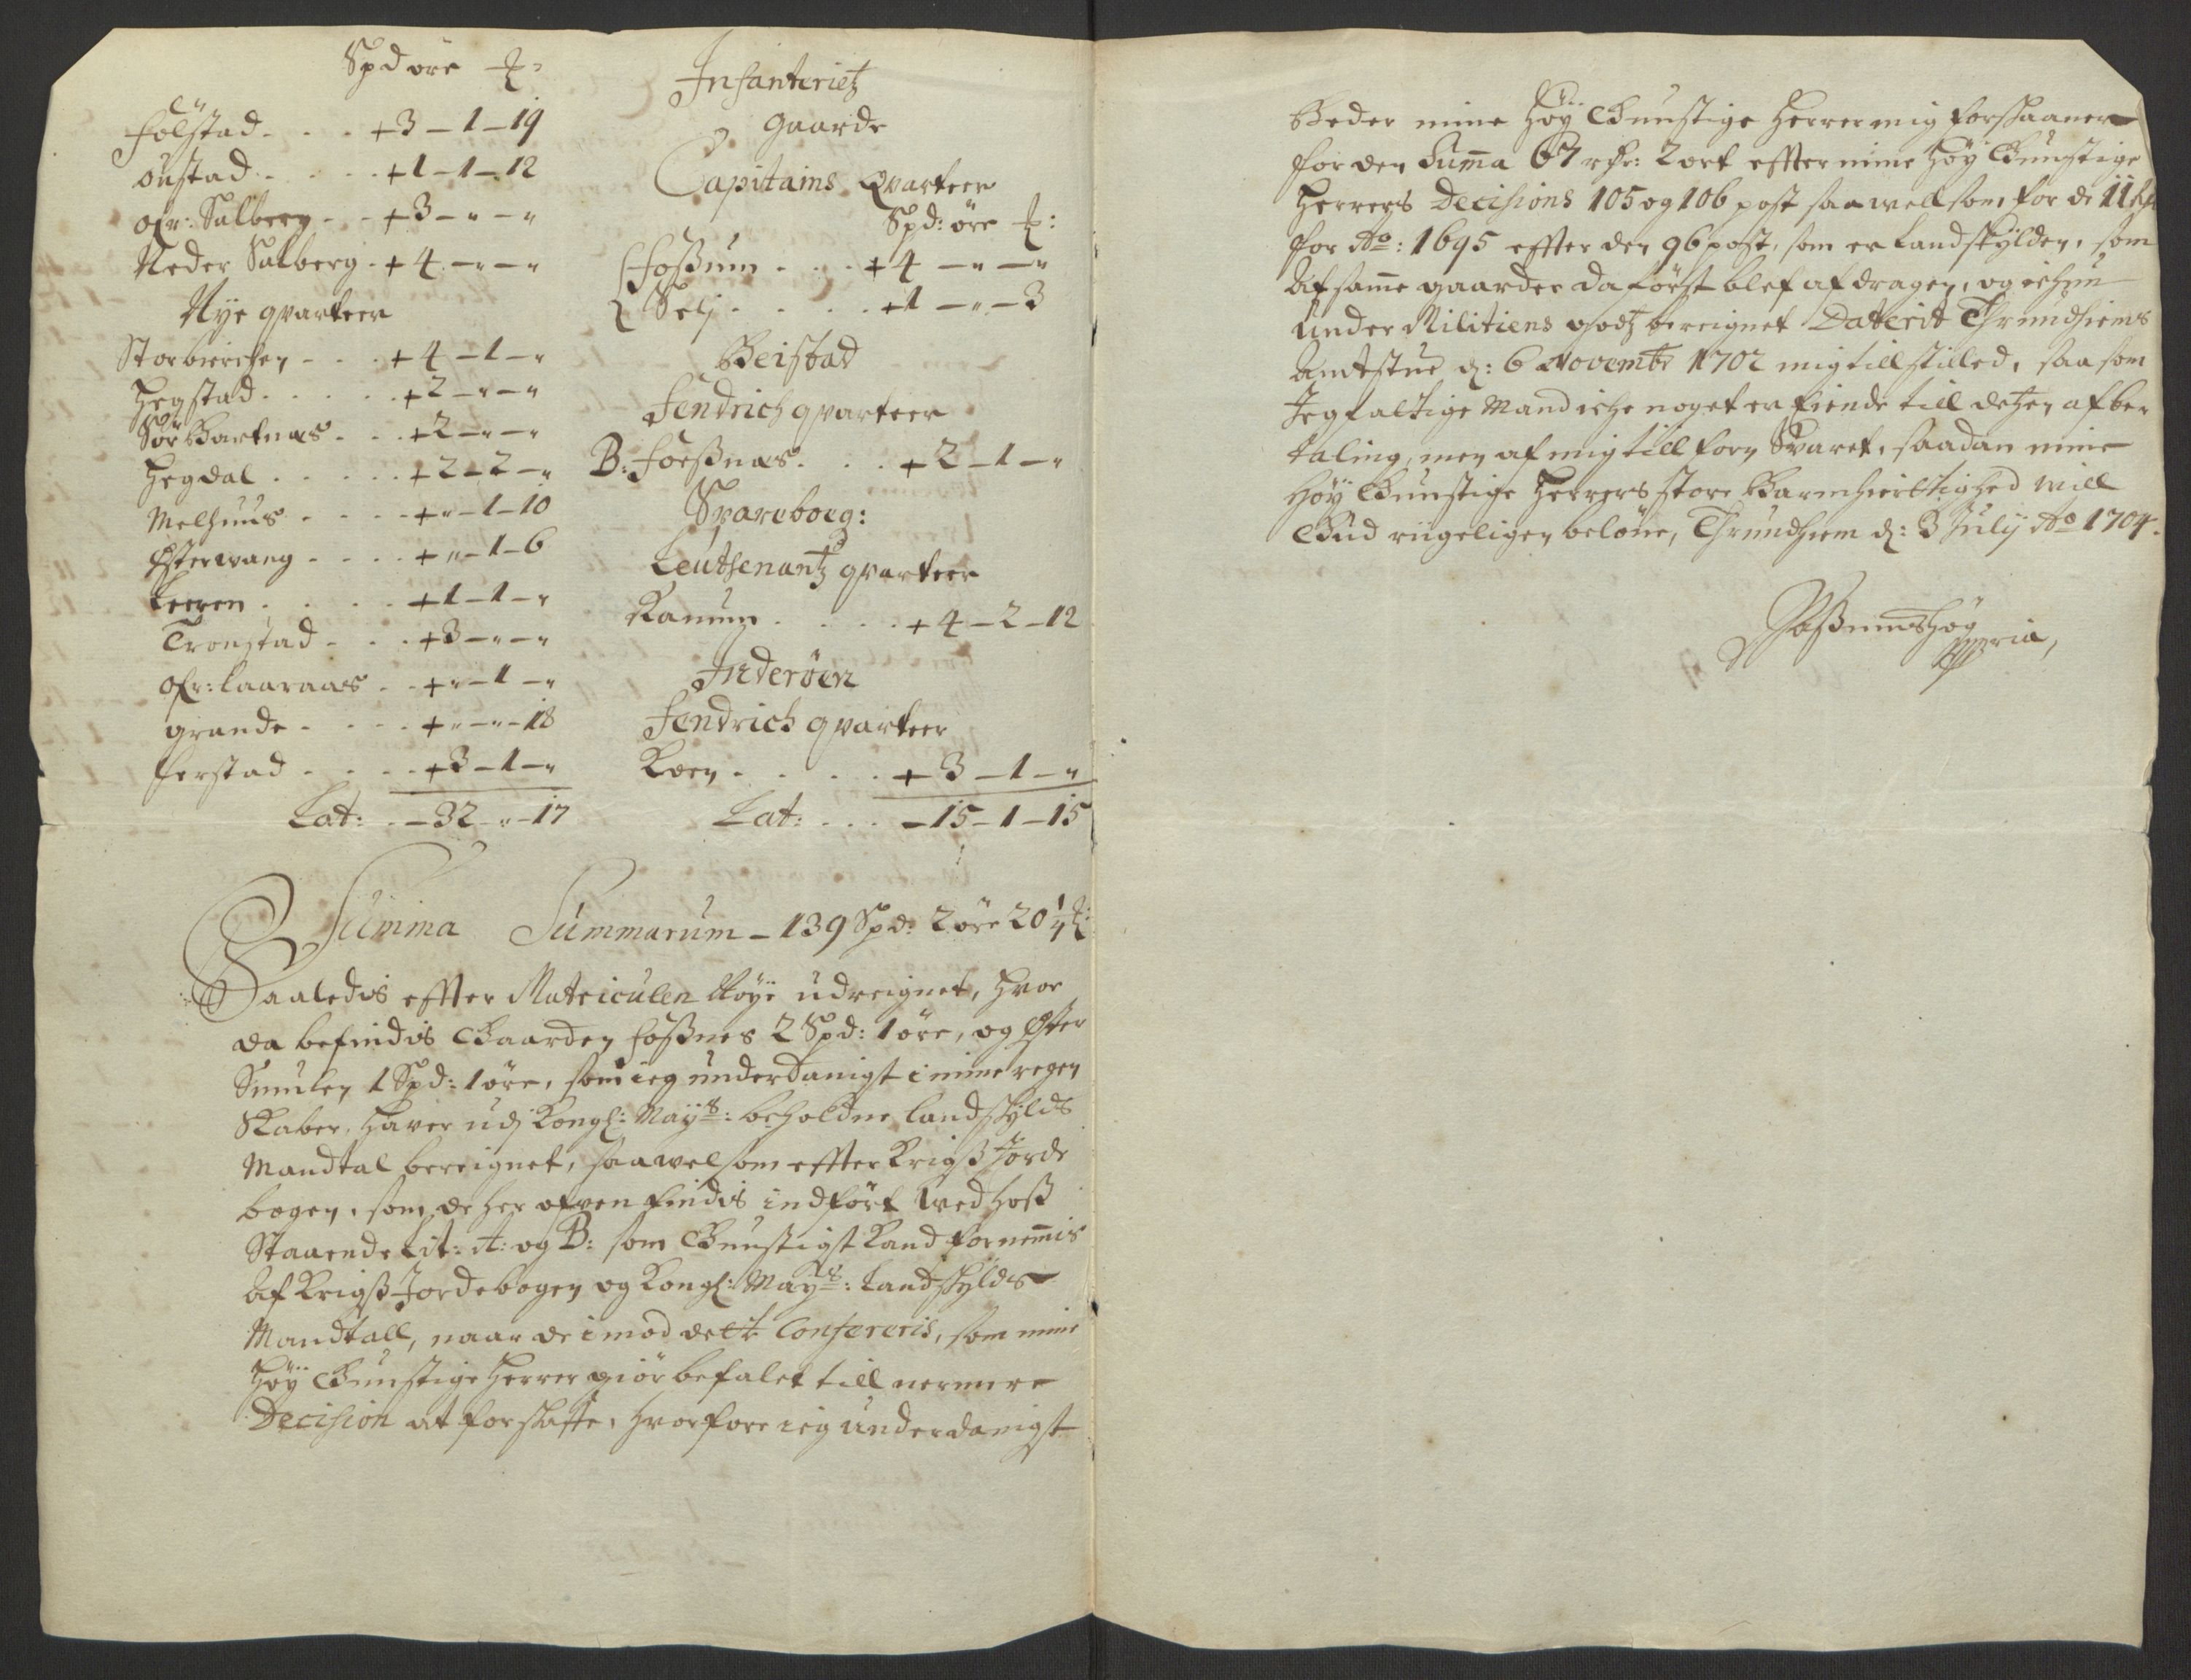 Spd öre ₰:
Fölstad . . . +3 – 1 – 19
Oustad . . . +1 – 1 – 12
ofr: Salberg . . +3 – " – "
Neder Salberg . +4 – " – "
Nye qvarteer
Storbierchen . . . +4 – 1 – "
Hegstad . . . . +2 – " – "
Sör Bartnæs . . . +2 – " – "
Hegdal . . . . . +2 – 2 – "
Melhuus . . . . +" – 1 – 10
Østerwang . . . . +" – 1 – 6
Leeren . . . . +1 – 1 – "
Tronstad . . . +3 – " – "
ofr: laaraas . . +" – 1 – "
grande . . . . +" – " – 18
Ferstad . . . . +3 – 1 – "
Lat: . – 32 – " – 17
Infanterietz
gaarde
Capitains Qvarteer
Spd: öre ₰:
Foßum . . . +4 – " – "
Selj . . . . +1 – " – 3
Beistad
Fendrich qvarteer
B: Foeßnæs . . . +2 – 1 – "
Spareboeg:
Leuthenantz qvarteer
Ranum . . . . +4 – 2 – 12
Inderöen
Fendrich qvarteer
Koen . . . . +3 – 1 – "
Lat: . . . – 15 – 1 – 15
Summa Summarum – 139 Spd: 2 öre 20 1/4 ₰:
Saaledis effter Matriculen Nöye udreignet, hvor
da befindis Gaarden Foßnes 2 Spd: 1 öre, og Øster
Smulen 1 Spd: 1 öre, som ieg underdanigst i mine regen
skaber, haver udj Kongl: Mayts: beholdne landskylds
Mandtal bereignet, saawelsom effter Krigß Jorde
bogen, som de her ofven findis indfört ved hoß
Staaende Lit: A: og B: som Gunstigst kand fornemmis
af Krigß-Jordebogen og Kongl: Mayts: Landskylds
Mandtall, naar de imod dette Confereris, som mine
höy Gunstige Herrer giör befalet till nermere
Decision at forskaffe, hvorfore ieg underdanigst
Beder mine Höy Gunstige Herrer mig forskaaner
for den Summa 67 rdr: 2 ort effter mine höy Gunstige
Herrers Decisions 105 og 106 post saawelsom for de 11
for Ao: 1695 effter den 96 post, som er landskylden, som
af samme gaarder da först blef afdragen, og ichun
under Militiens godtz bereignet Daterit Trundhiems
Amtstue d: 6 Novembr 1702 mig tillstilled, saasom
Jeg faltige Mand iche noget er tiende till detzen afbe
taling, men af mig till forn Svaret, saadan mine
höy Gunstige Herrers store Barmhiertighed vill
Gud riigeligen belöne, Trundhiem d: 3 July Ao 1704.